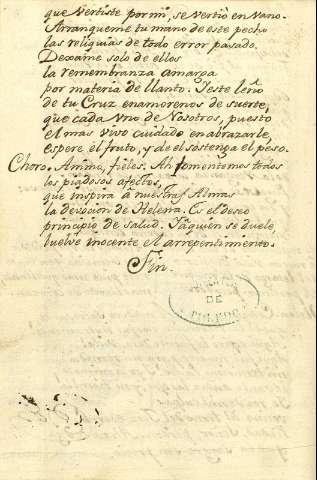 que Vertiste por mi, se vertiò en vano.
Arranqueme tu mano de este pecho
las reliquias de todo error pasado.
Dexame solo de ellos
la remembranza amarga
por materia de llanto. Y este leño
de tu Cruz enamorenos de suerte,
que cada uno de Nosotros, puesto
el mas vivo cuidado en abrazarle,
espere el fruto, y de el sostenga el peso.
Choro. Animo, fieles. Ah fomentemos todos
los piadosos afectos,
que inspira à nuestras Almas
la devocion de Helena. Es el deseo
principio de salud. Y à quien se duele,
vuelve inocente el arrepentimiento.
Fin.
DE
TOLEDO